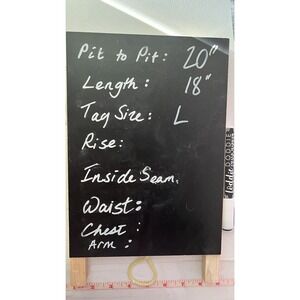 Pit to Pit: 20"
Length: 18"
Tag Size: L
Rise:
Inside Seam.
Waist:
Chest:
Arm:
DOODLE